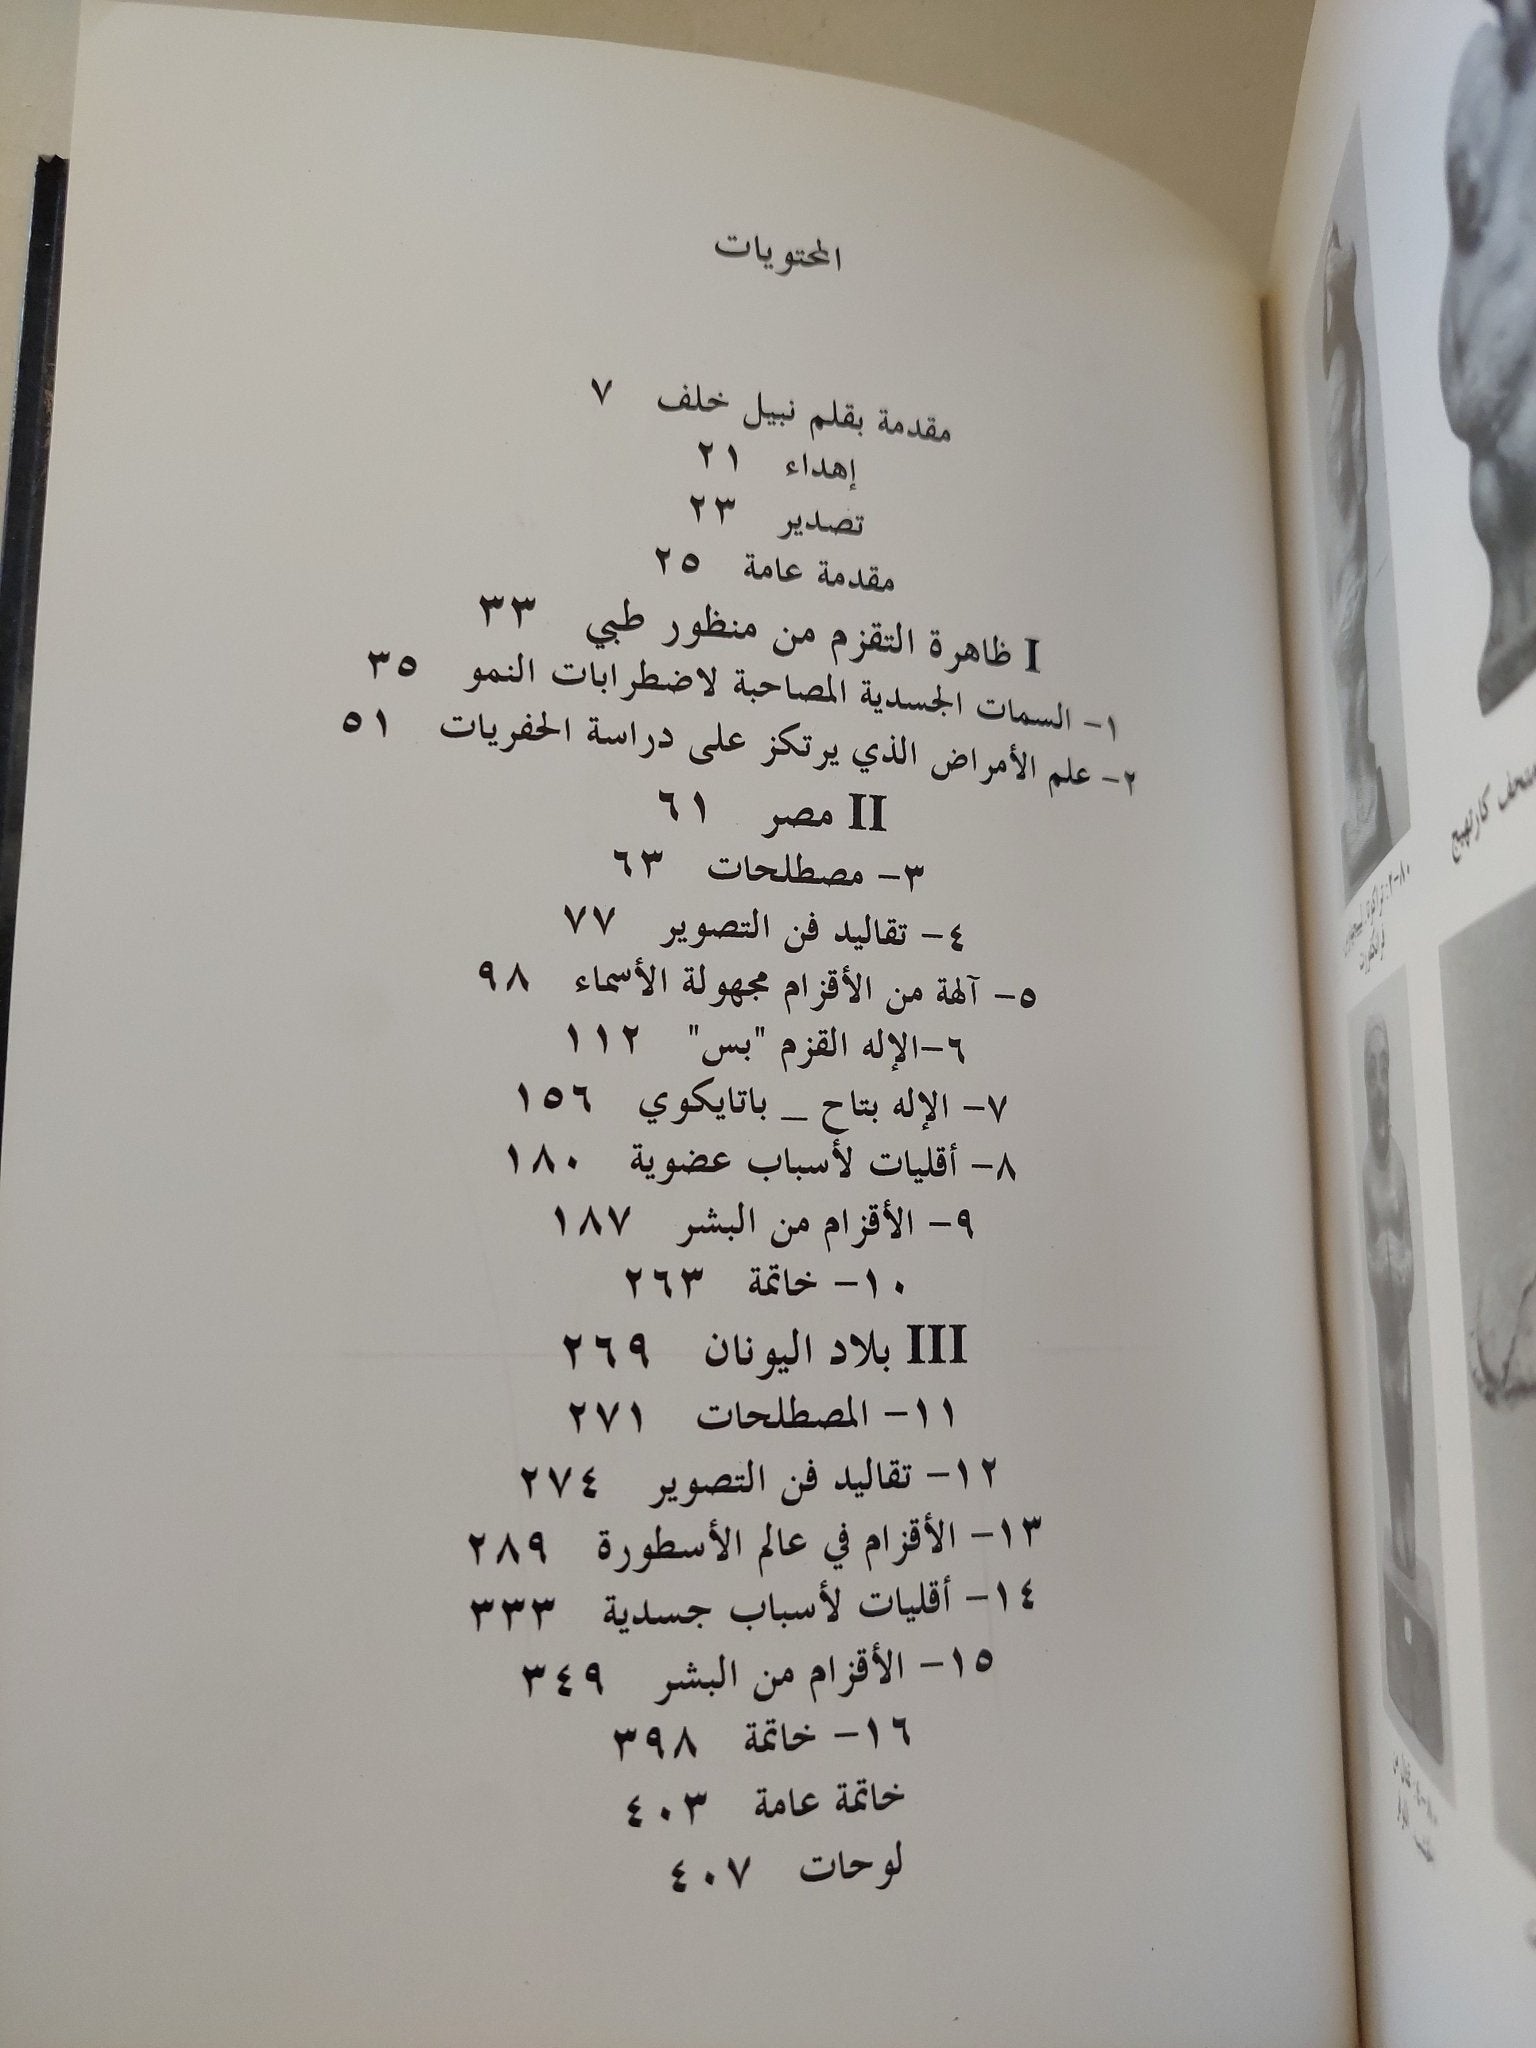 المحتويات
مقدمة بقلم نبيل خلف ٧
إهداء ٢١
تصدير ٢٣
مقدمة عامة ٢٥
I ظاهرة التقزم من منظور طبي ٣٣
١- السمات الجسدية المصاحبة لاضطرابات النمو ٣٥
٢- علم الأمراض الذي يرتكز على دراسة الحفريات ٥١
II مصر ٦١
٣- مصطلحات ٦٣
٤- تقاليد فن التصوير ٧٧
٥- آلهة من الأقزام مجهولة الأسماء ٩٨
٦-الإله القزم "بس" ١١٢
٧- الإله بتاح _ باتايكوي ١٥٦
٨- أقليات لأسباب عضوية ١٨٠
٩- الأقزام من البشر ١٨٧
١٠- خاتمة ٢٦٣
III بلاد اليونان ٢٦٩
١١- المصطلحات ٢٧١
١٢- تقاليد فن التصوير ٢٧٤
١٣- الأقزام في عالم الأسطورة ٢٨٩
١٤- أقليات لأسباب جسدية ٣٣٣
١٥- الأقزام من البشر ٣٤٩
١٦- خاتمة ٣٩٨
خاتمة عامة ٤٠٣
لوحات ٤٠٧
كارتهيج